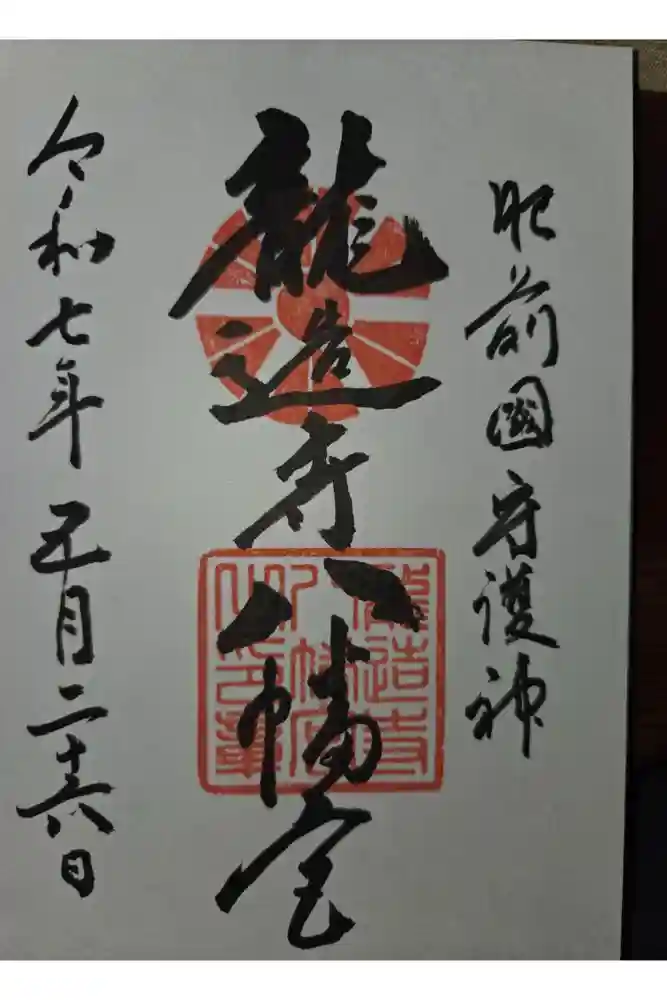 肥前國守護神
龍造寺八幡宮
令和七年五月二十六日
龍造寺
八幡宮
之印章